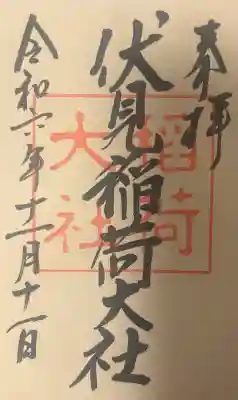 奉拝
伏見稲荷大社
令和年十一月十一日
稲荷
大社